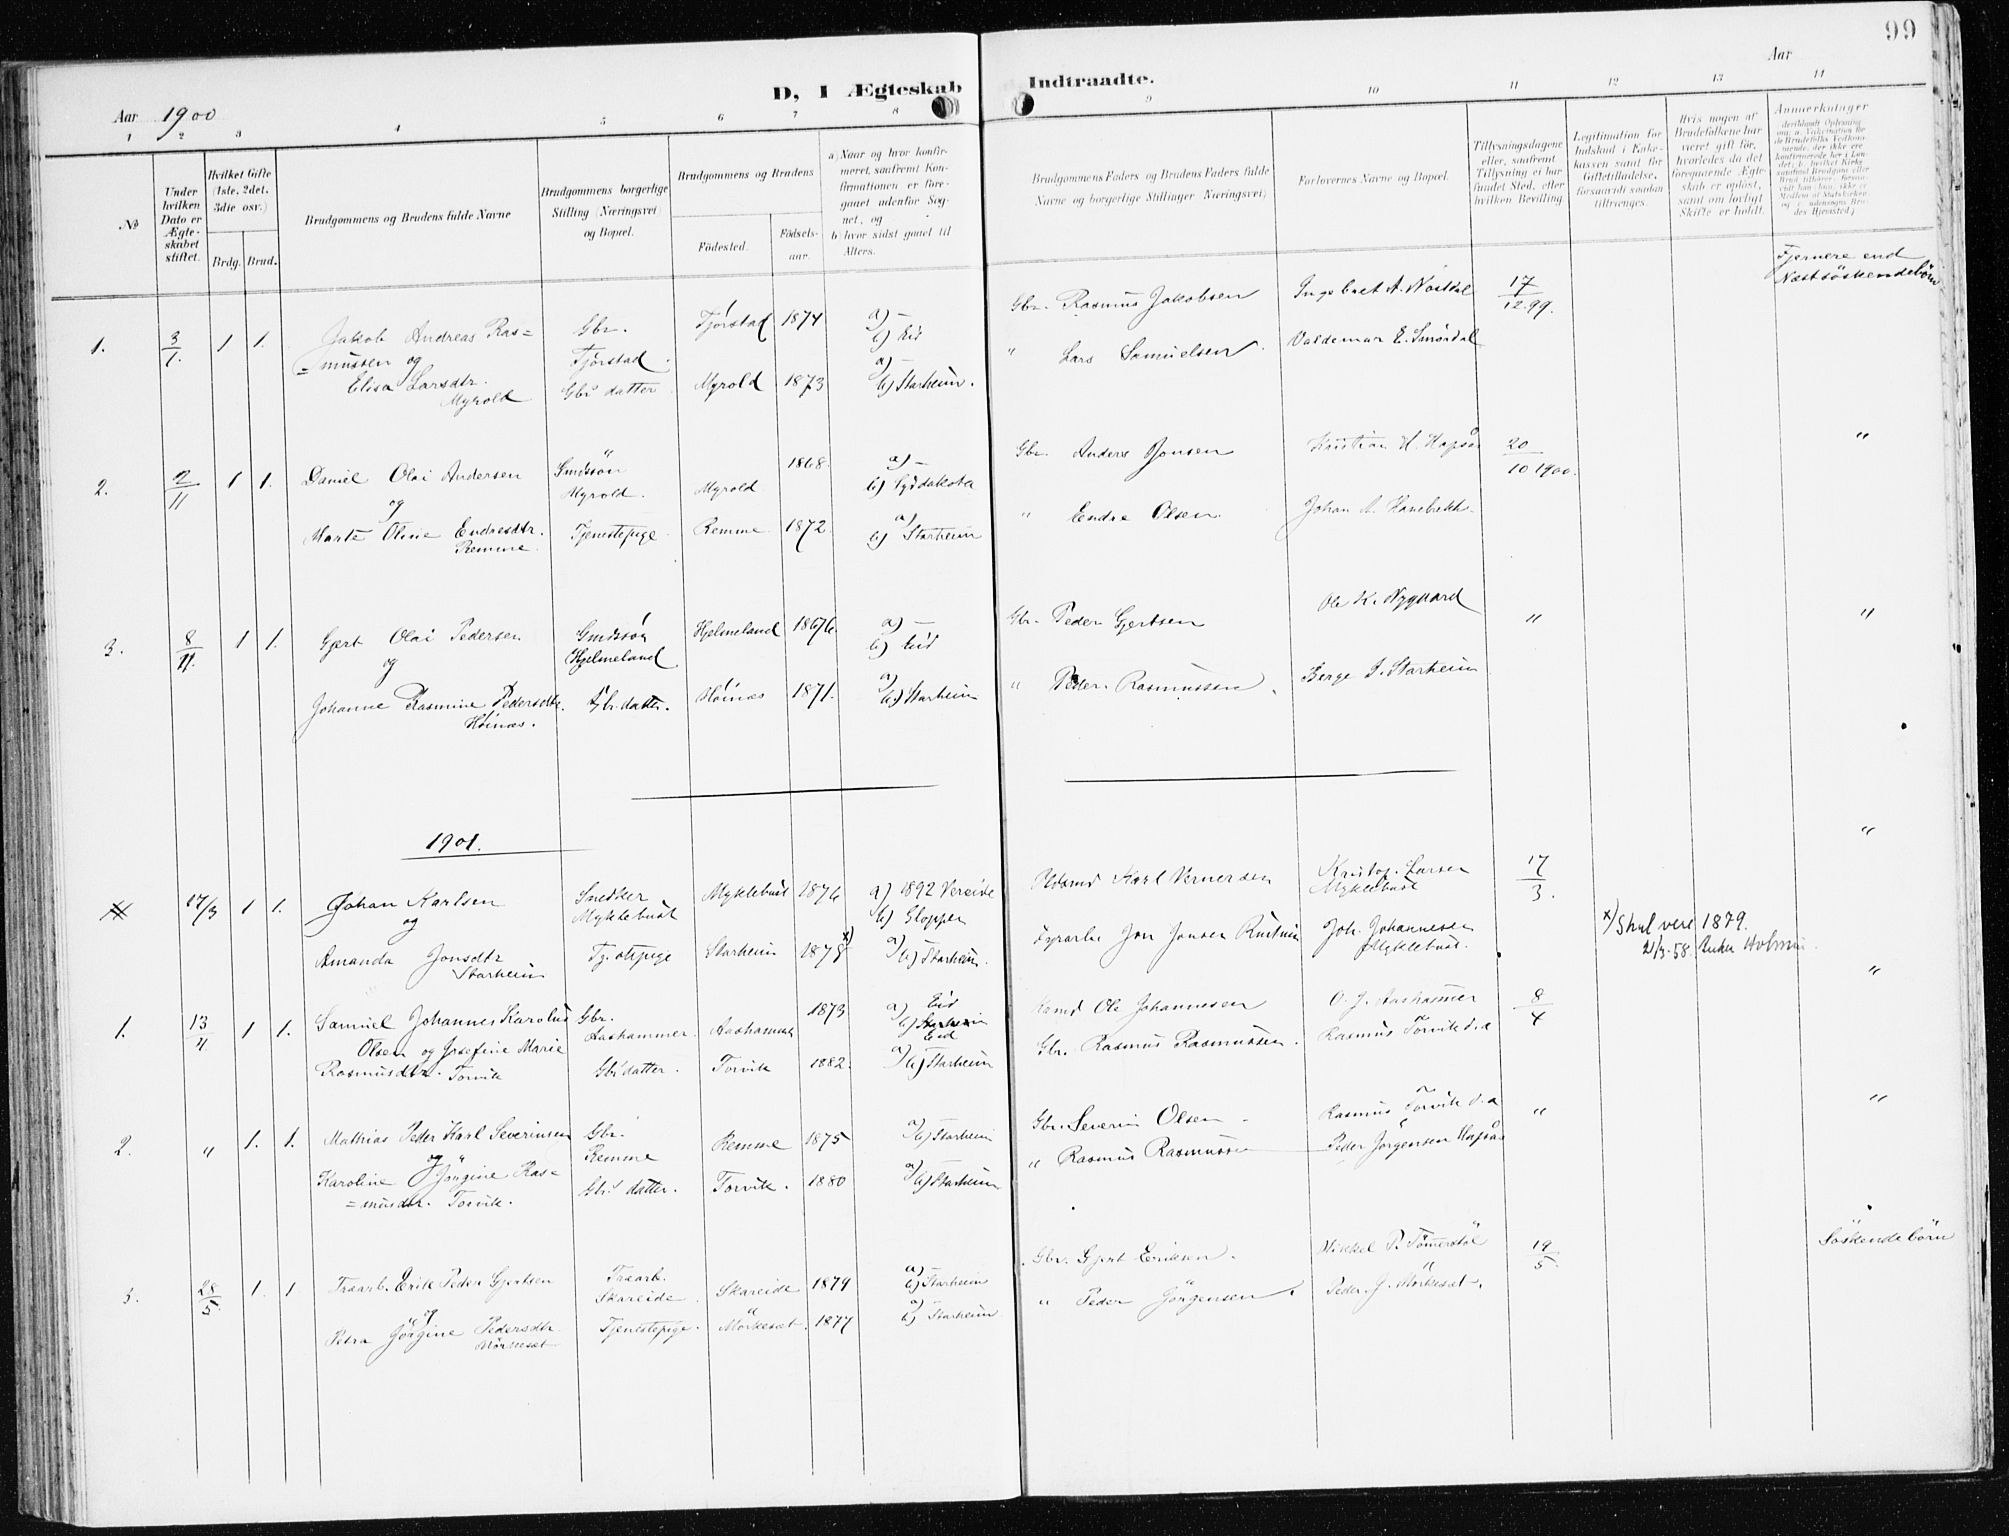 99
D, I Ægteskab Indtraadte.
Aar 1900
Aar
1 2 3 4 5 6 7 8 9 10 11 12 13 14
No
Under hvilken Dato er Ægteskabet stiftet.
Hvilket Gifte (1ste, 2det, 3die osv.)
Brdg. Brud.
Brudgommens og Brudens fulde Navne
Brudgommens borgerlige Stilling (Næringsvei) og Bopæl.
Brudgommens og Brudens
Fødested. Fødselsaar.
a) Naar og hvor konfirmeret, saafremt Konfirmationen er foregaaet udenfor Sognet, og
b) hvor sidst gaaet til Alters.
Brudgommens Faders og Brudens Faders fulde Navne og borgerlige Stillinger (Næringsvei)
Forlovernes Navne og Bopæl.
Tillysningsdagene eller, saafremt Tillysning ei har fundet Sted, efter hvilken Bevilling
Legitimation for Indskud i Enkekassen samt for Giftetilladelse, forsaavidt saadan tiltrænges.
Hvis nogen af Brudefolkene har været gift før, hvorledes da det foregaaende Ægteskab er opløst, samt om lovligt Skifte er holdt.
Anmerkninger
1. 3/1. 1 1. Jakob Andreas Ras= Gbr. Tjørstad 1874 a) — Gbr. Rasmus Jakobsen Ingebret A. Nøstdal 17/12 99. Fjernere end Næstsöskendebörn
=mussen og Tjørstad. b) Eid
Elisa Larsdtr. Myrold Gbr datter Myrold 1873 a) — b) Starheim. " Lars Samuelsen. Valdemar E. Smördal
2. 2/11 1 1. Daniel Olai Andersen Smdssön Myrold. Myrold 1868. a) — Gbr. Anders Jonsen Kristian H. Hapsaa 20/10 1900. "
og
Marte Oline Endresdtr. Remme. Tjenestepige Remme 1872. a) b) Starheim " Endre Olsen. Johan A.
3. 8/11. 1 1. Gjert Olai Pedersen Hjelmeland Hjelmeland 1876. a) — b) Eid Gbr. Peder Gjertsen Ole K. Nygaard " "
og
Johanne Rasmine Pedersdtr. Höinæs. Gbr. datter. Höinæs 1871. a) b) Starheim " Peder Rasmussen. Berge Starheim
1901.
17/3 1 1. Johan Karlsen Snedker Myklebust Myklebust 1876 a) 1892 Vereide b) Gloppen Karl Vernersen Kristop. Larsen Myklebust 17/3. "
og
Amanda Jonsdtr Starheim Starheim 1878 x) a) b) Starheim. Jon Jonsen Joh. Johannessen Myklebust. x) Skal vere 1879.
2/3-58.
1. 13/4 1 1. Samuel Johannes Karolus Gbr. Aashammer. Aashammer 1873 a) Eid b) Starheim Eid Ole Johannesen O. J. Aashammer 8/4 "
Olsen og Josefine Marie
Rasmusdtr. Torvik Gbr datter. Torvik 1882. a) b) Starheim Gbr. Rasmus Rasmussen. Rasmus Torvik d.a
2. " 1. 1. Mathias Peder Karl Severinsen Gbr. Remme Remme 1875 a) b) Starheim Gbr. Severin Olsen Rasmus Torvik d.a " "
og
Karoline Jörgine Ras= Gbr. datter. Torvik. 1880 a) b) Starheim " Rasmus Rasmussen Peder Jørgensen Hapsaa
=musdtr. Torvik.
3. 28/5. 1. 1. Traarb. Erik Peder Gjertsen Traarb. Skareide. Skareide 1879 a) — b) Starheim Gbr. Gjert Eriksen. Mikkel P. Tömerstöl 19/5. Söskendebörn
og
Petra Jörgine Pedersdtr Mörkesæt Tjenestepige. Mörkesæt. 1877 a) — b) Starheim " Peder Jörgensen. Peder J. Mörkesæt.